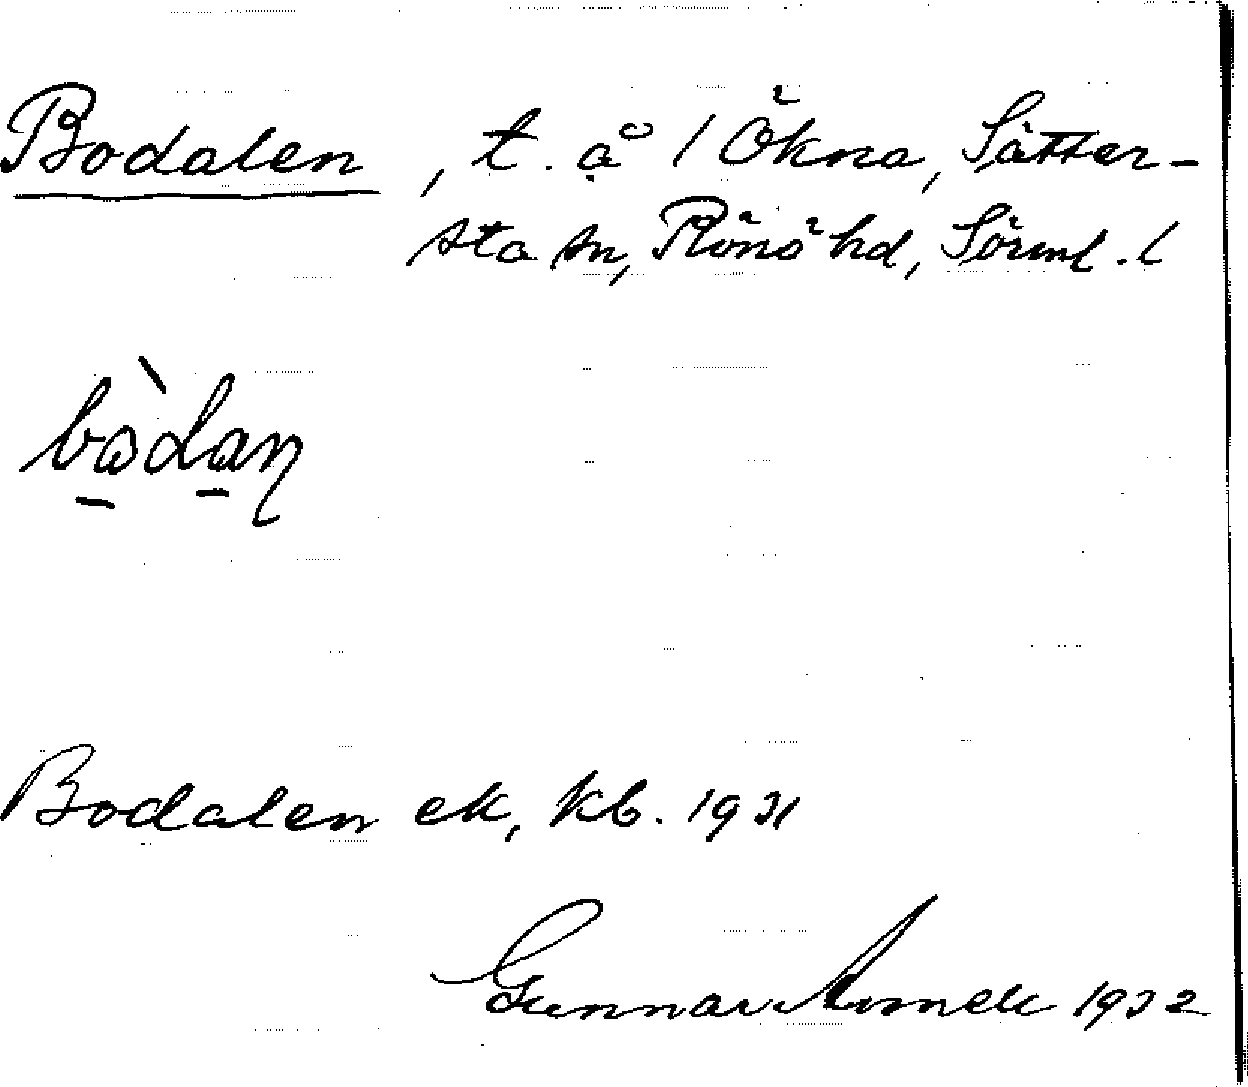 Bodalen, t. å 1 Ökna, Sätter-
sta sn, Rönö hd, Sörml. l
Bodalen ek, kb. 1931
Gunnar 1932